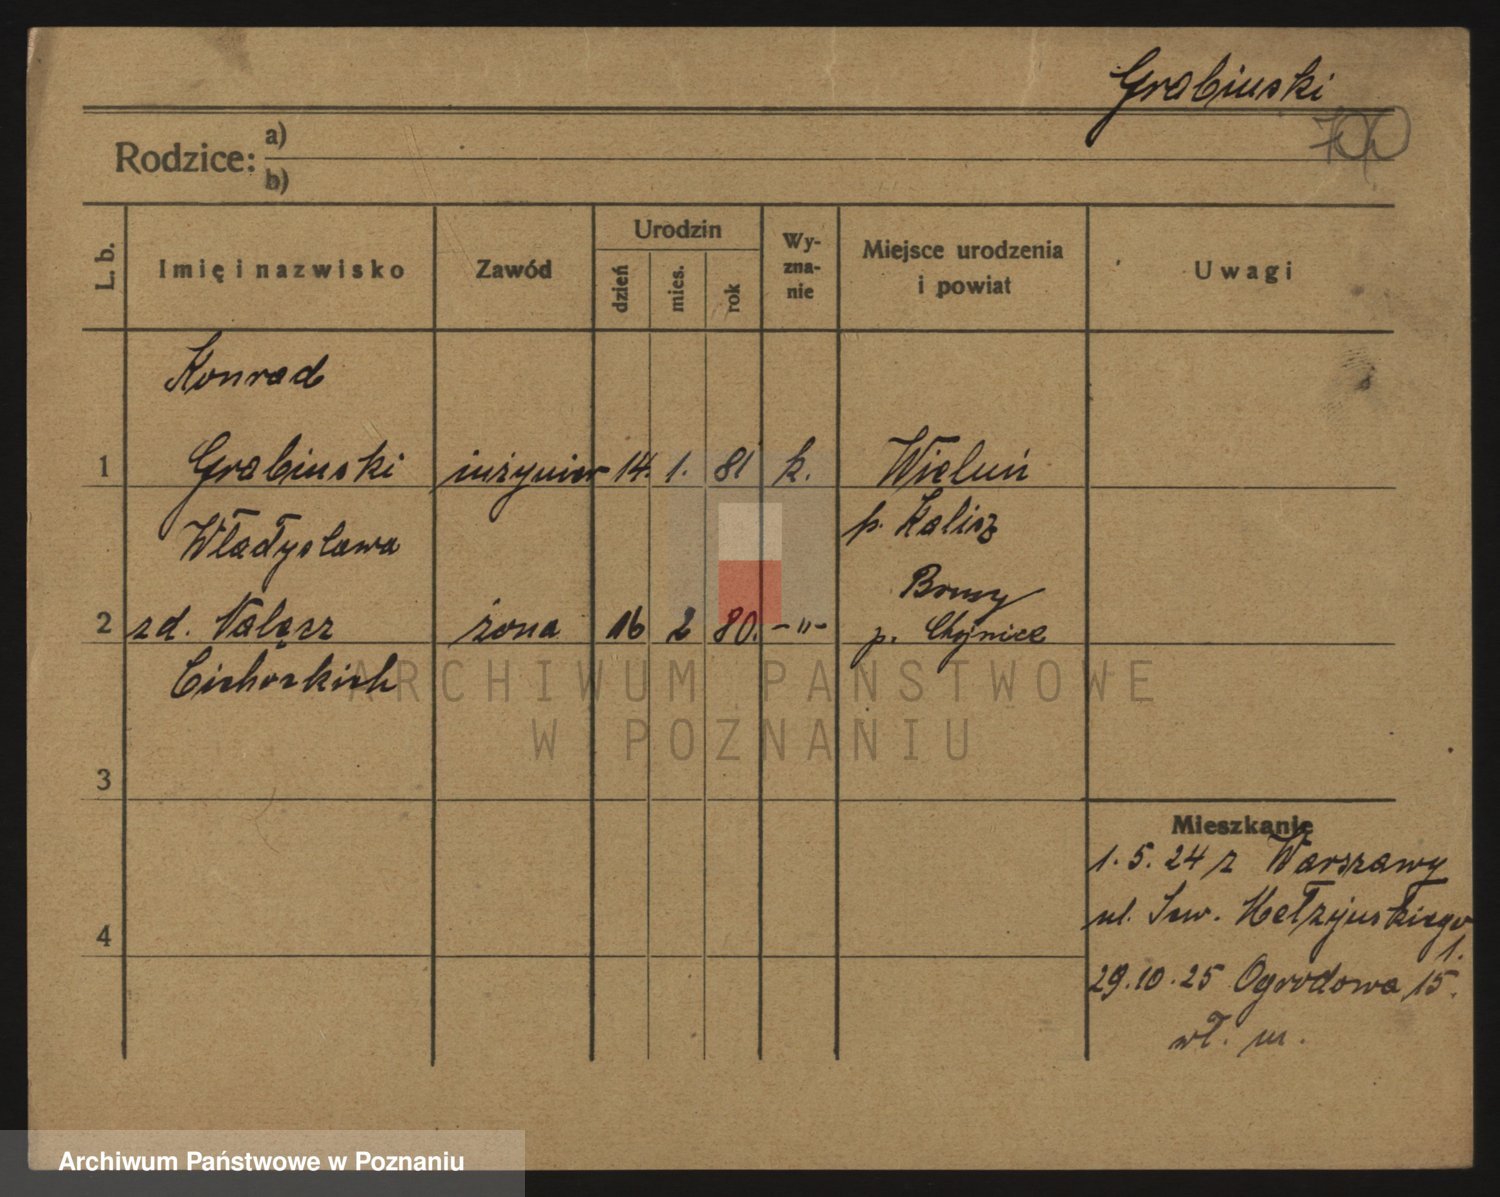 Grabiński
700
Rodzice: a)
b)
L. b.
Imię i nazwisko
Zawód
Urodzin
dzień
mies.
rok
Wy-
zna-
nie
Miejsce urodzenia
i powiat
Uwagi
Konrad
1 Grabiński inżynier 14. 1. 81 k. Wieluń
Władysława p. Kalisz
Brusy
2 zd. Nałęcz żona 16 2 80. -"- p. Chojnice
Cichockich
ARCHIWUM PAŃSTWOWE
W POZNANIU
3
Mieszkanie
1. 5. 24 z Warszawy
4
ul. Sew. Mełżyńskiego
1.
29. 10. 25 Ogrodowa 15.
wł. m.
Archiwum Państwowe w Poznaniu